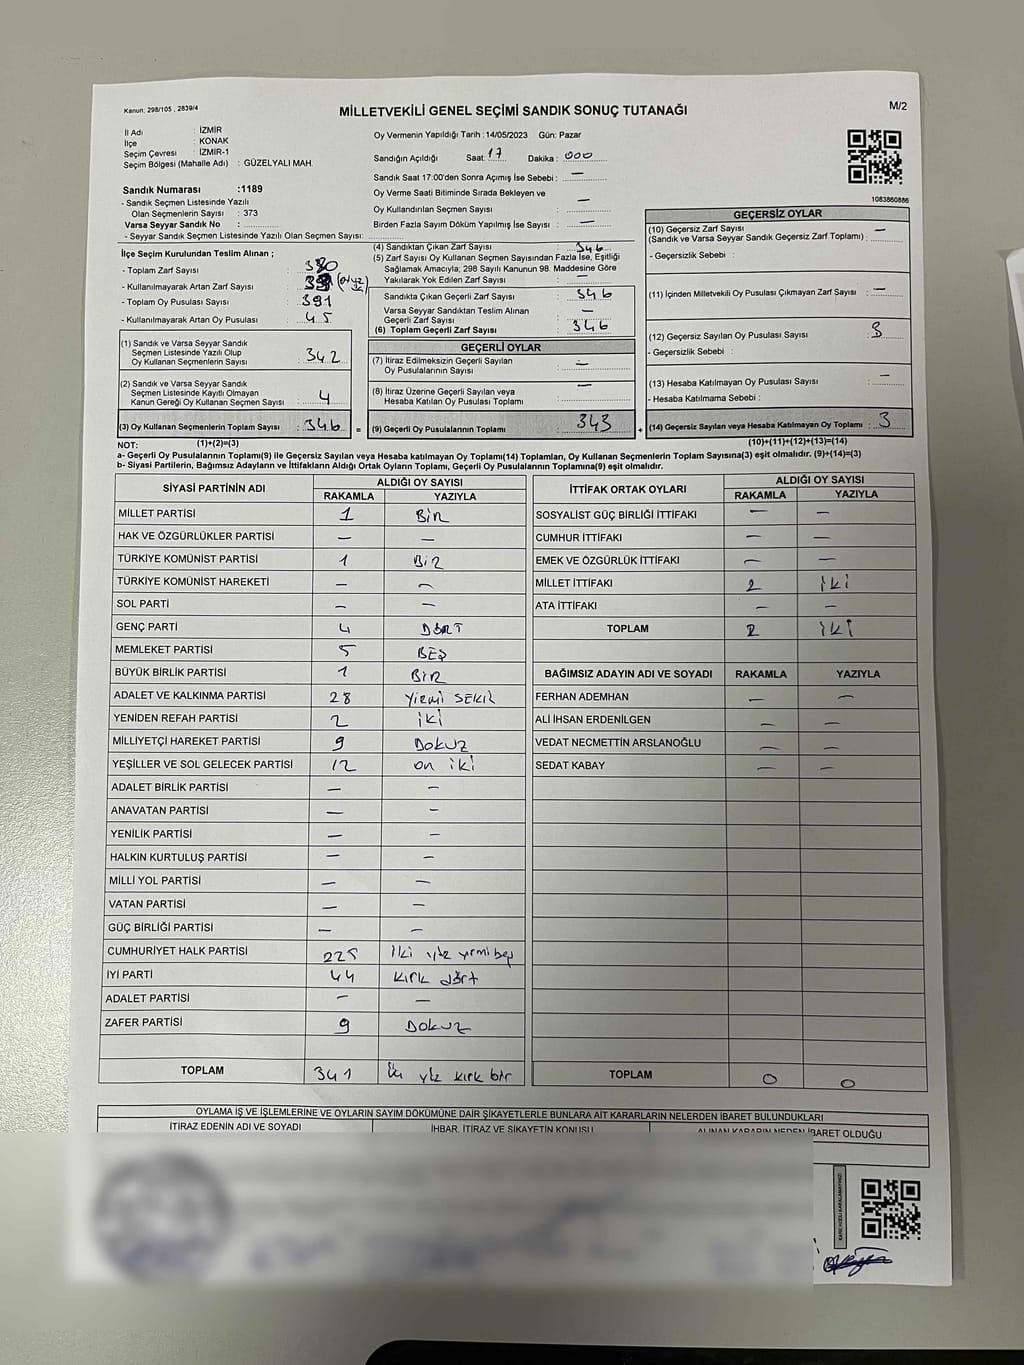 Kanun: 298/105 , 2839/4
MİLLETVEKİLİ GENEL SEÇİMİ SANDIK SONUÇ TUTANAĞI
M/2
İl Adı : İZMİR
İlçe : KONAK
Seçim Çevresi : İZMİR-1
Seçim Bölgesi (Mahalle Adı) : GÜZELYALI MAH.
Oy Vermenin Yapıldığı Tarih :14/05/2023 Gün: Pazar
Sandığın Açıldığı Saat: 17 Dakika : 000
Sandık Saat 17:00'den Sonra Açımış İse Sebebi : —
Oy Verme Saati Bitiminde Sırada Bekleyen ve
Oy Kullandırılan Seçmen Sayısı —
Birden Fazla Sayım Döküm Yapılmış İse Sayısı : —
1083860886
Sandık Numarası :1189
- Sandık Seçmen Listesinde Yazılı
Olan Seçmenlerin Sayısı : 373
Varsa Seyyar Sandık No :
- Seyyar Sandık Seçmen Listesinde Yazılı Olan Seçmen Sayısı:
İlçe Seçim Kurulundan Teslim Alınan ;
- Toplam Zarf Sayısı :
- Kullanılmayarak Artan Zarf Sayısı :
- Toplam Oy Pusulası Sayısı : 391
- Kullanılmayarak Artan Oy Pusulası : 45
(1) Sandık ve Varsa Seyyar Sandık
Seçmen Listesinde Yazılı Olup
Oy Kullanan Seçmenlerin Sayısı : 342
(2) Sandık ve Varsa Seyyar Sandık
Seçmen Listesinde Kayıtlı Olmayan
Kanun Gereği Oy Kullanan Seçmen Sayısı : 4
(3) Oy Kullanan Seçmenlerin Toplam Sayısı : 346
(4) Sandıktan Çıkan Zarf Sayısı : 346
(5) Zarf Sayısı Oy Kullanan Seçmen Sayısından Fazla İse, Eşitliği
Sağlamak Amacıyla; 298 Sayılı Kanunun 98. Maddesine Göre
Yakılarak Yok Edilen Zarf Sayısı :
Sandıkta Çıkan Geçerli Zarf Sayısı : 346
Varsa Seyyar Sandıktan Teslim Alınan
Geçerli Zarf Sayısı : —
(6) Toplam Geçerli Zarf Sayısı : 346
GEÇERLİ OYLAR
(7) İtiraz Edilmeksizin Geçerli Sayılan
Oy Pusulalarının Sayısı : —
(8) İtiraz Üzerine Geçerli Sayılan veya
Hesaba Katılan Oy Pusulası Toplamı : —
= (9) Geçerli Oy Pusulalarının Toplamı : 343
GEÇERSİZ OYLAR
(10) Geçersiz Zarf Sayısı
(Sandık ve Varsa Seyyar Sandık Geçersiz Zarf Toplamı) : —
- Geçersizlik Sebebi :
(11) İçinden Milletvekili Oy Pusulası Çıkmayan Zarf Sayısı : —
(12) Geçersiz Sayılan Oy Pusulası Sayısı : 3
- Geçersizlik Sebebi :
(13) Hesaba Katılmayan Oy Pusulası Sayısı : —
- Hesaba Katılmama Sebebi :
+ (14) Geçersiz Sayılan veya Hesaba Katılmayan Oy Toplamı : 3
NOT: (1)+(2)=(3) (10)+(11)+(12)+(13)=(14)
a- Geçerli Oy Pusulalarının Toplamı(9) ile Geçersiz Sayılan veya Hesaba katılmayan Oy Toplamı(14) Toplamları, Oy Kullanan Seçmenlerin Toplam Sayısına(3) eşit olmalıdır. (9)+(14)=(3)
b- Siyasi Partilerin, Bağımsız Adayların ve İttifakların Aldığı Ortak Oyların Toplamı, Geçerli Oy Pusulalarının Toplamına(9) eşit olmalıdır.
SİYASİ PARTİNİN ADI ALDIĞI OY SAYISI
RAKAMLA YAZIYLA
MİLLET PARTİSİ 1 Bir
HAK VE ÖZGÜRLÜKLER PARTİSİ — —
TÜRKİYE KOMÜNİST PARTİSİ 1 Bir
TÜRKİYE KOMÜNİST HAREKETİ — —
SOL PARTİ — —
GENÇ PARTİ 4 DÖRT
MEMLEKET PARTİSİ 5 BEŞ
BÜYÜK BİRLİK PARTİSİ 1 BİR
ADALET VE KALKINMA PARTİSİ 28 Yirmi SEKİZ
YENİDEN REFAH PARTİSİ 2 iki
MİLLİYETÇİ HAREKET PARTİSİ 9 Dokuz
YEŞİLLER VE SOL GELECEK PARTİSİ 12 on iki
ADALET BİRLİK PARTİSİ — —
ANAVATAN PARTİSİ — —
YENİLİK PARTİSİ — —
HALKIN KURTULUŞ PARTİSİ — —
MİLLİ YOL PARTİSİ — —
VATAN PARTİSİ — —
GÜÇ BİRLİĞİ PARTİSİ — —
CUMHURİYET HALK PARTİSİ 225 iki yüz yirmi beş
İYİ PARTİ 44 kırk dört
ADALET PARTİSİ — —
ZAFER PARTİSİ 9 Dokuz
TOPLAM 341 Üç yüz kırk bir
İTTİFAK ORTAK OYLARI ALDIĞI OY SAYISI
RAKAMLA YAZIYLA
SOSYALİST GÜÇ BİRLİĞİ İTTİFAKI — —
CUMHUR İTTİFAKI — —
EMEK VE ÖZGÜRLÜK İTTİFAKI — —
MİLLET İTTİFAKI 2 iki
ATA İTTİFAKI — —
TOPLAM 2 iki
BAĞIMSIZ ADAYIN ADI VE SOYADI RAKAMLA YAZIYLA
FERHAN ADEMHAN — —
ALİ İHSAN ERDENİLGEN — —
VEDAT NECMETTİN ARSLANOĞLU — —
SEDAT KABAY — —
TOPLAM 0 0
OYLAMA İŞ VE İŞLEMLERİNE VE OYLARIN SAYIM DÖKÜMÜNE DAİR ŞİKAYETLERLE BUNLARA AİT KARARLARIN NELERDEN İBARET BULUNDUKLARI
İTİRAZ EDENİN ADI VE SOYADI İHBAR, İTİRAZ VE ŞİKAYETİN KONUSU ALINAN KARARIN NEDEN İBARET OLDUĞU